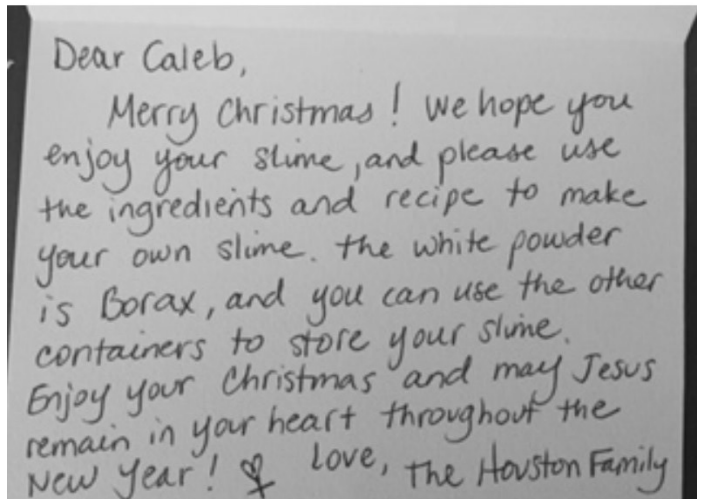 Dear Caleb,
Merry Christmas! We hope you
enjoy your slime, and please use
the ingredients and recipe to make
your own slime. The white powder
is Borax, and you can use the other
containers to store your slime.
Enjoy your Christmas and may Jesus
remain in your heart throughout the
New Year! Love, The Houston Family